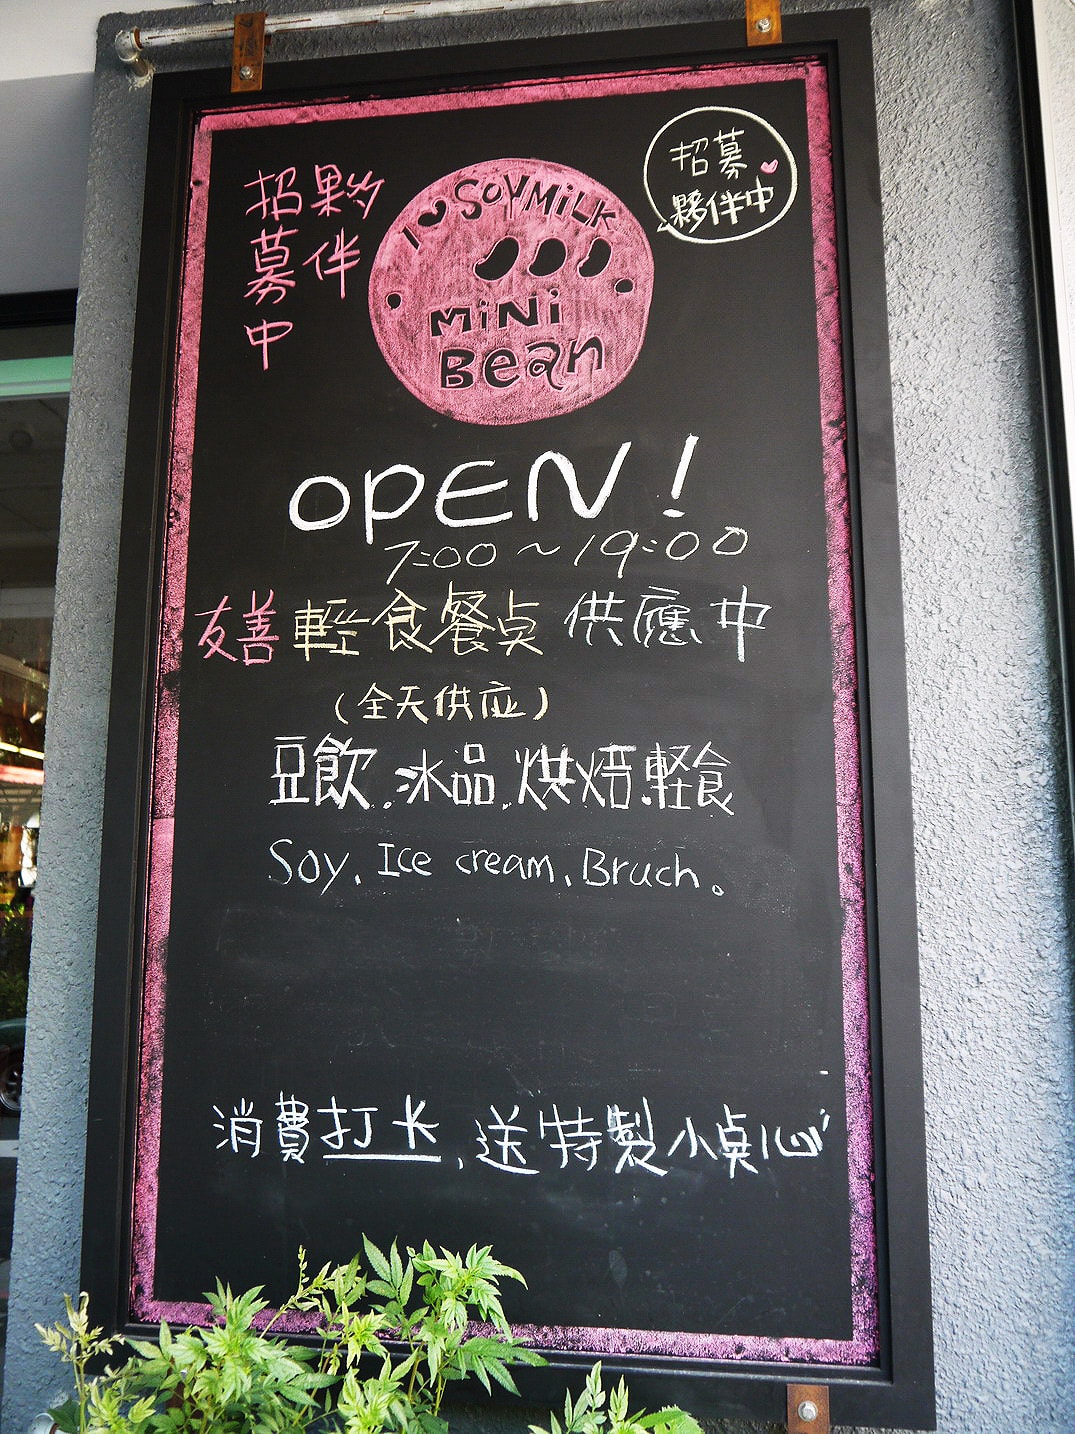 夥伴
招募中
I ♥ SOYMILK
MiNi
Bean
招募
夥伴中
OPEN!
7:00~19:00
友善輕食餐点供應中
(全天供应)
豆飲.冰品.烘焙.軽食
Soy、Ice cream、Bruch。
消費打卡,送特製小點心